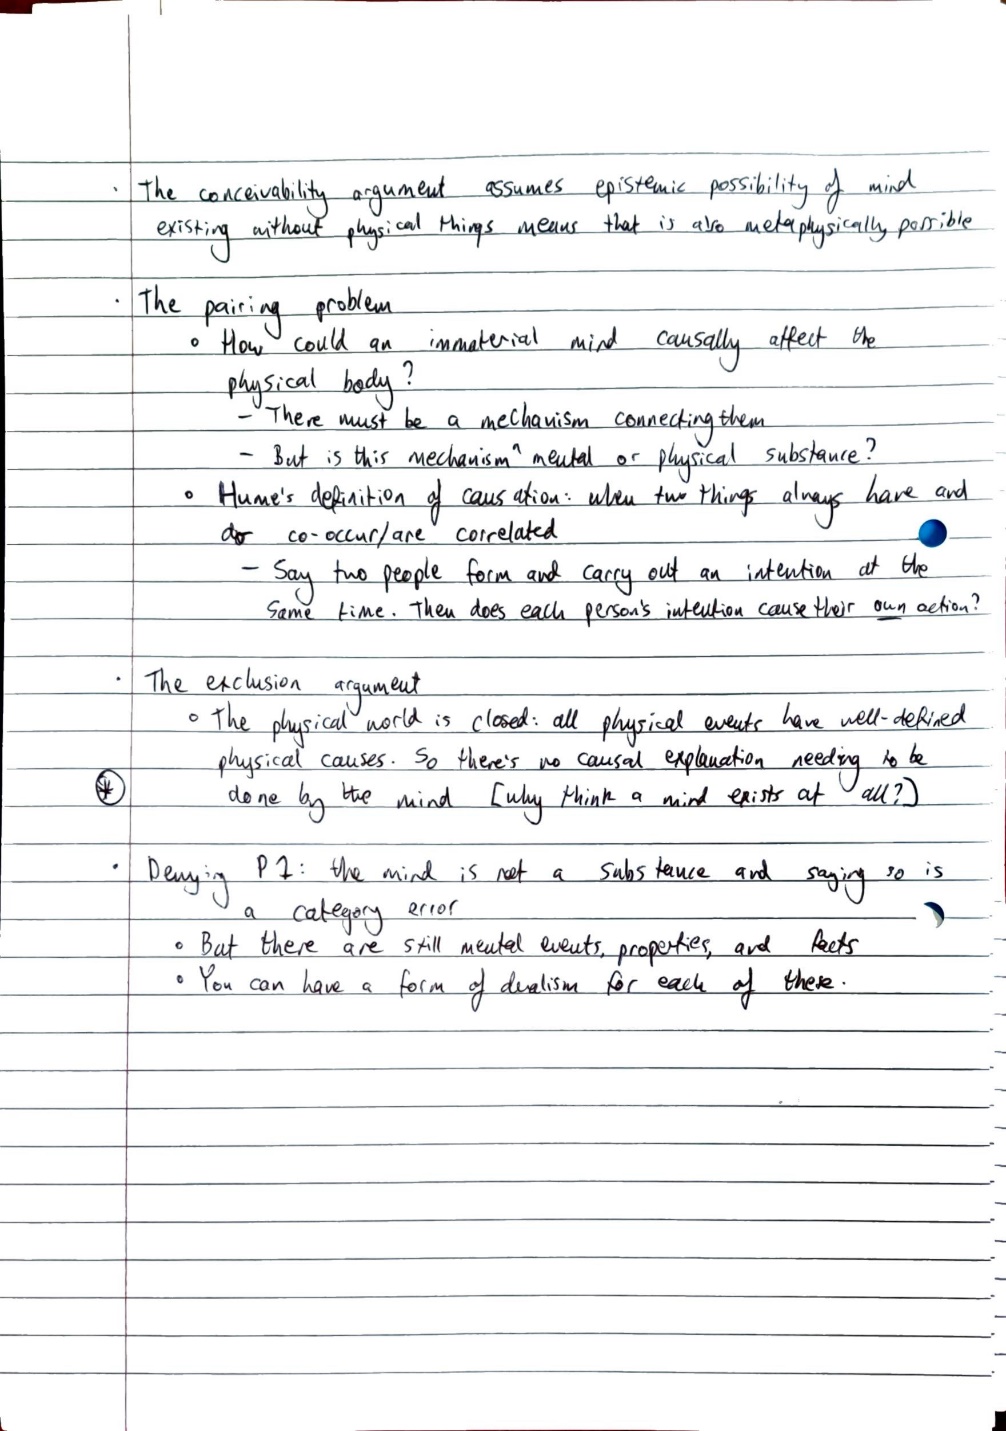 · The conceivability argument assumes epistemic possibility of mind
existing without physical things means that is also metaphysically possible
· The pairing problem
∘ How could an immaterial mind causally affect the
physical body?
– There must be a mechanism connecting them
– But is this mechanism ^ mental or physical substance?
∘ Hume's definition of causation: when two things always have and
do co-occur/are correlated
– Say two people form and carry out an intention at the
same time. Then does each person's intention cause their own action?
· The exclusion argument
∘ The physical world is closed: all physical events have well-defined
physical causes. So there's no causal explanation needing to be
done by the mind [why think a mind exists at all?]
· Denying P1: the mind is not a substance and saying so is
a category error
∘ But there are still mental events, properties, and facts
∘ You can have a form of dualism for each of these.